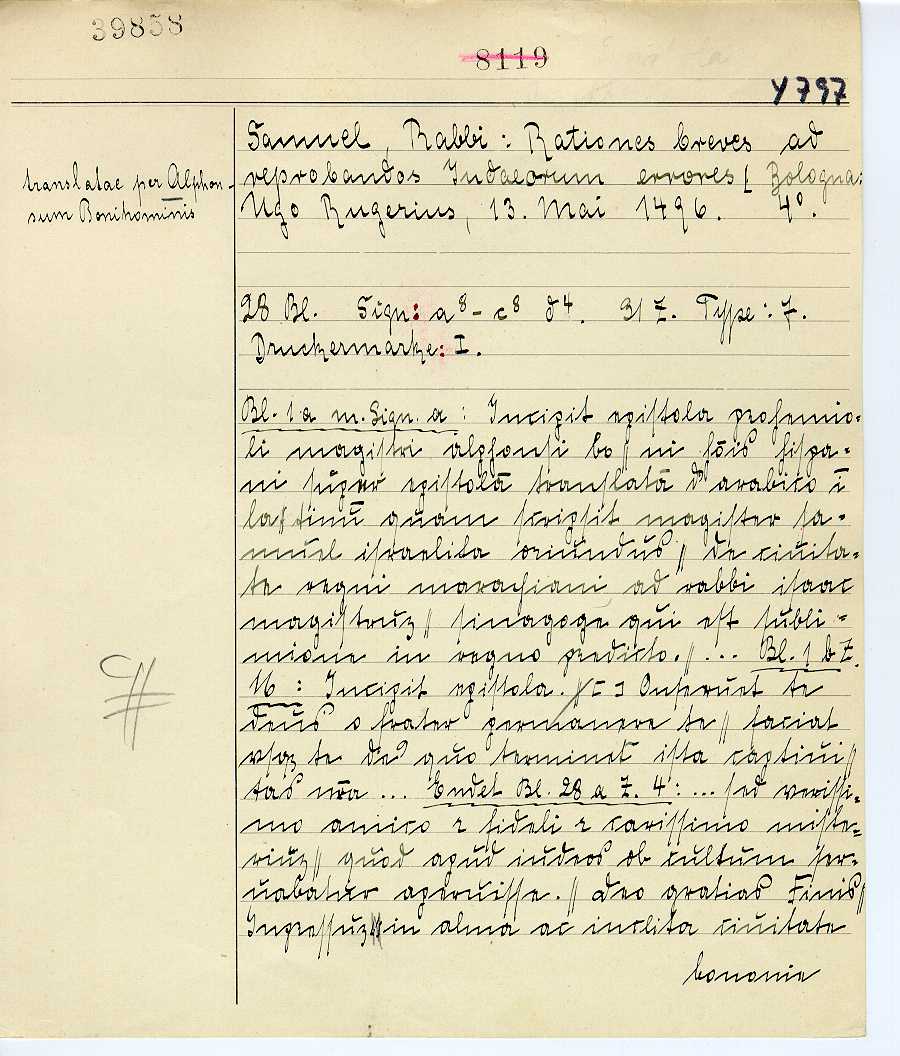 39858
8119
Y 797
translatae per Alphon-
sum Bonihominis
Samuel, Rabbi: Rationes breves ad
reprobandos Iudaeorum errores [Bologna:
Ugo Rugerius, 13. Mai 1496. 4°.
28 Bl. Sign: a⁸-c⁸ d⁴. 31 Z. Type: 7.
Druckermarke: I.
Bl. 1a m. Sign. a: Incipit epistola prohemio-
li magistri alphonsi bo//ni hois hispa-
ni super epistolā translatā de arabico ī
la//tinū quam scripsit magister sa-
muel israelita oriundus // de ciuita-
te regni marachiani ad rabbi isaac
magistruz // sinagoge qui est subli-
mione in regno predicto. // ... Bl. 1 b Z.
16: Incipit epistola. // [ ] Onseruet te
deus o frater permanere te // faciat
vsqz te quo terminet ista captiui //
tas nra ... Endet Bl. 28 a Z. 4: ... sed verissi-
mo amico ⁊ fideli ⁊ carissimo miste-
riuz // quod apud iudeos ob cultum ser-
uabatur aperuisse. // Deo gratias Finis //
Inpressuz // in alma ac inclita ciuitate
bononie